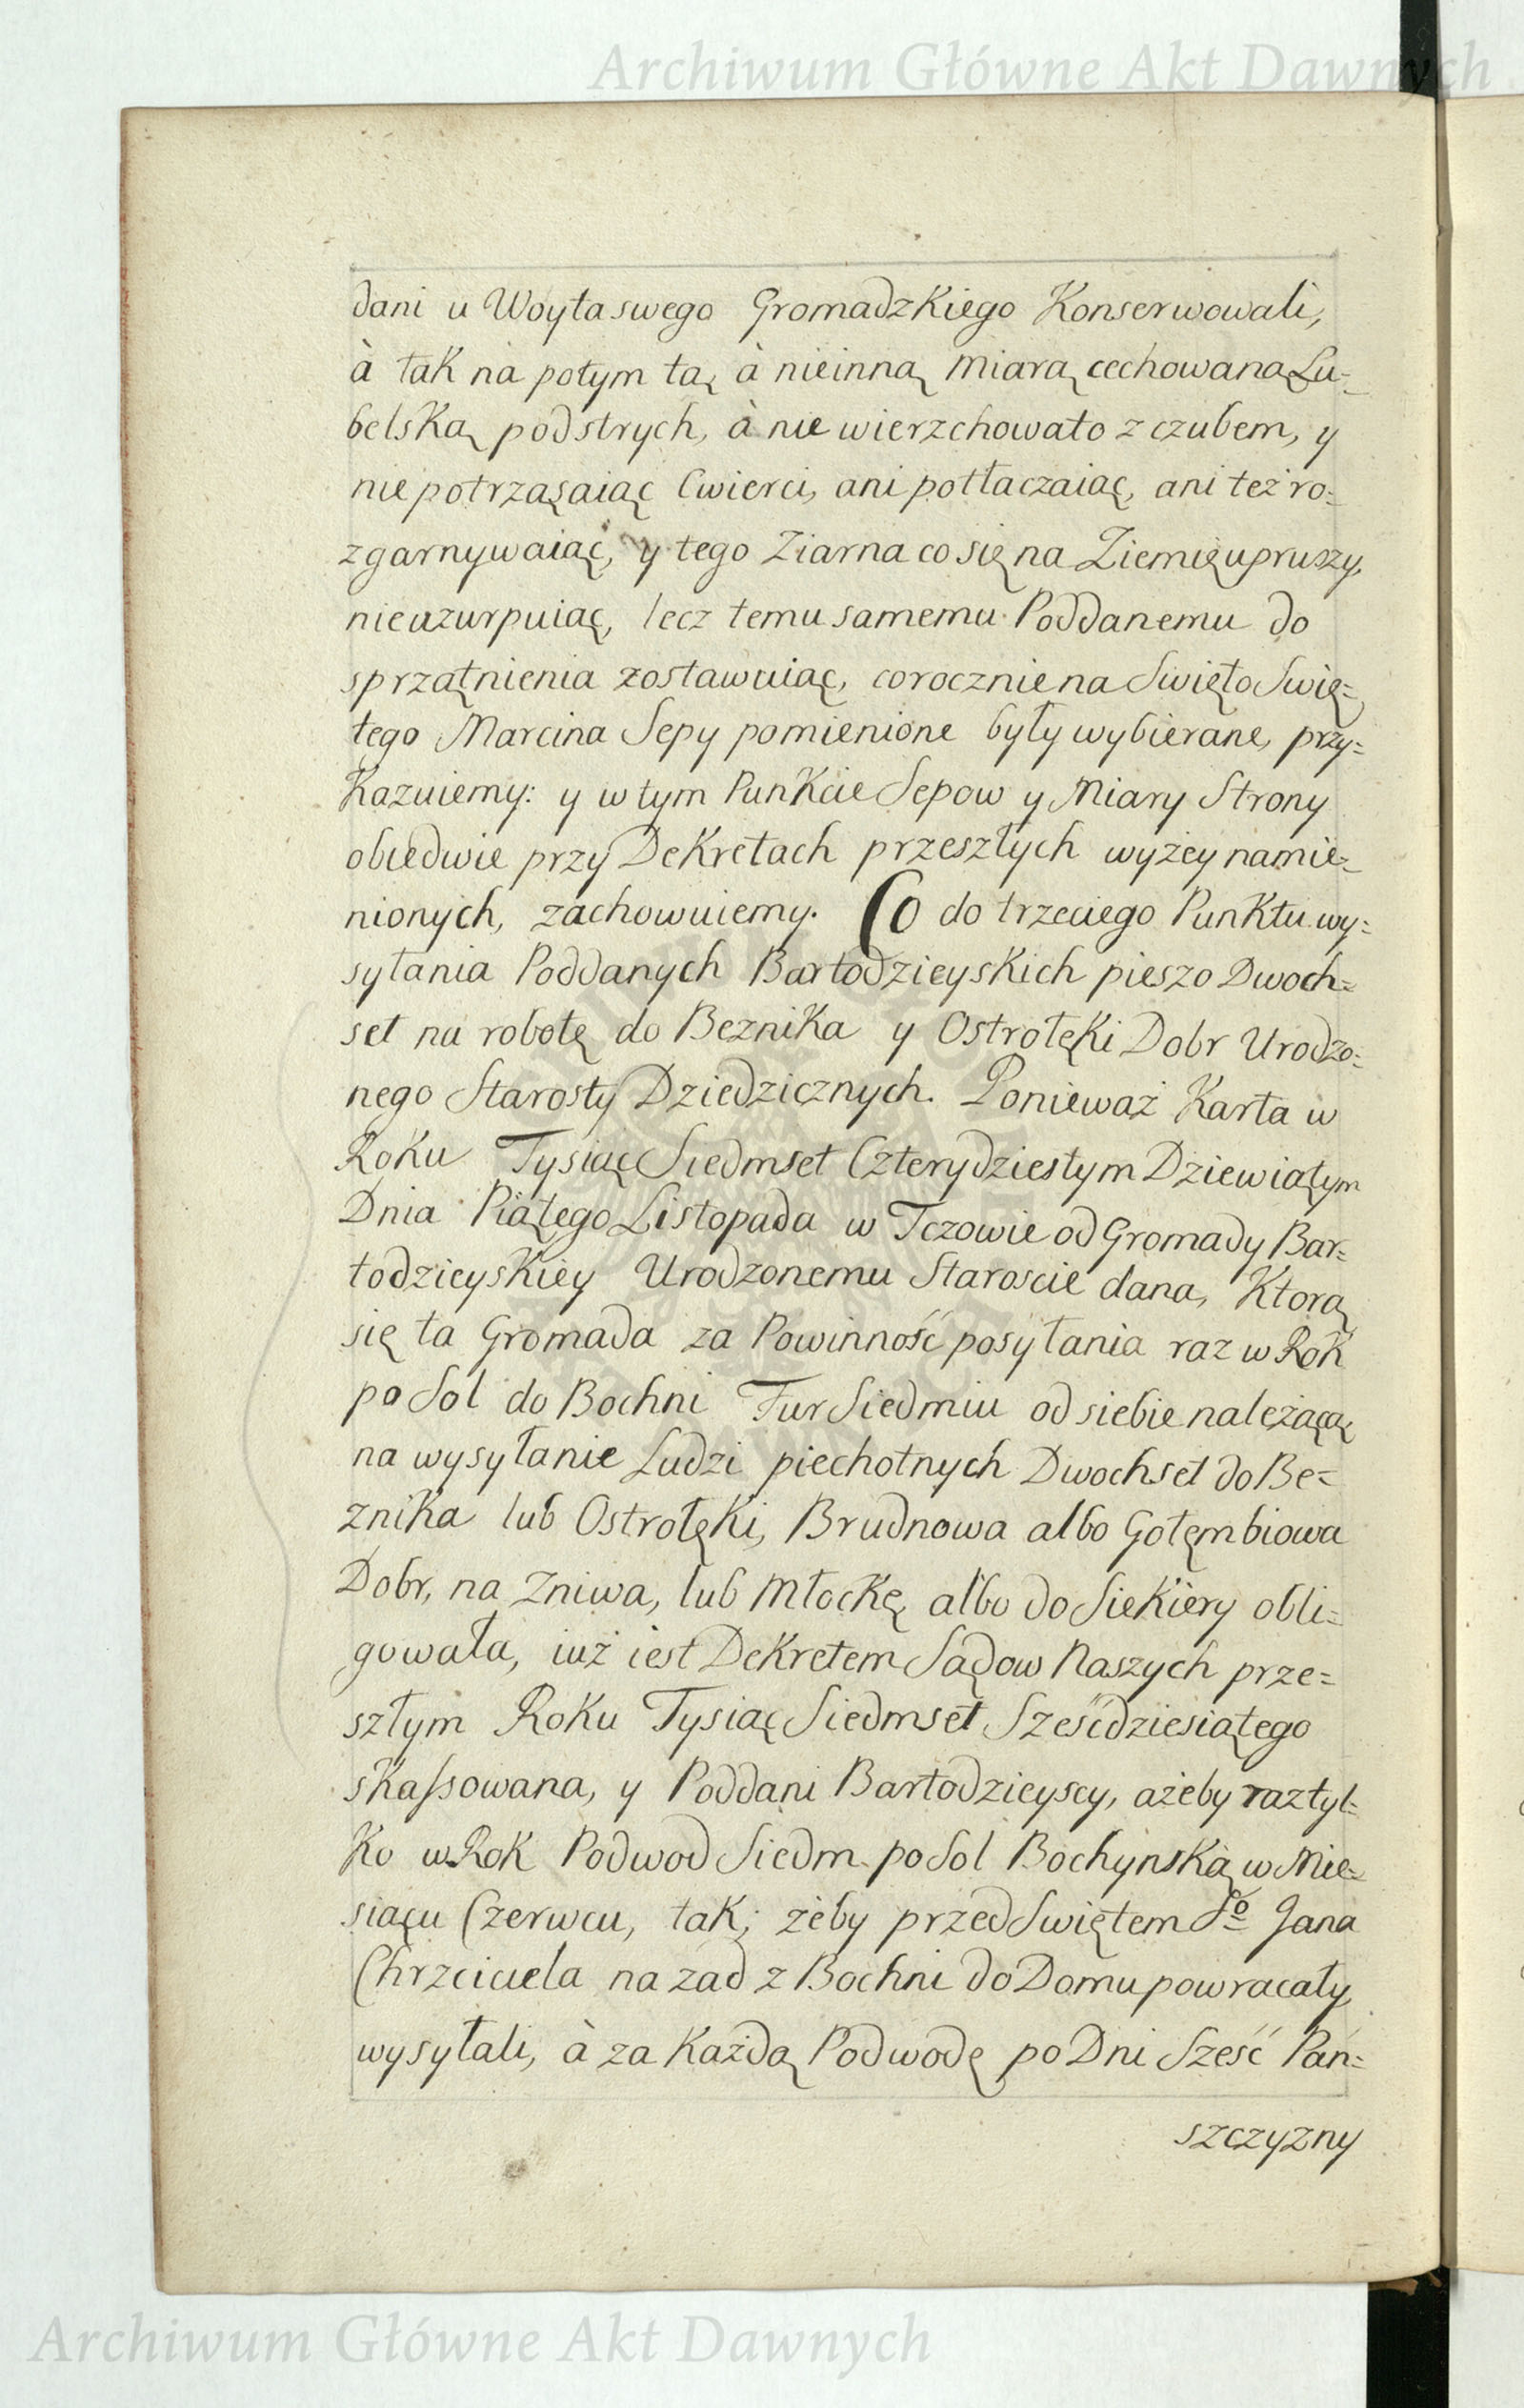 Archiwum Główne Akt Dawnych
dani u Woyta swego Gromadzkiego Konserwowali,
à tak na potym tą, à nieinną Miarą cechowaną Lu=
belską podstrych, à nie wierzchowato z czubem, y
nie potrząsaiąc Cwierci, ani potłaczaiąc, ani też ro=
zgarnywaiąc, y tego Ziarna co się na Ziemię upruszy,
nieuzurpuiąc, lecz temu samemu Poddanemu do
sprzątnienia zostawuiąc, corocznie na Swięto Swię=
tego Marcina Sepy pomienione były wybierane, przy=
kazuiemy: y w tym Punkcie Sepow y Miary Strony
obiedwie przy Dekretach przeszłych wyżey namie=
nionych, zachowuiemy. Co do trzeciego Punktu wy=
syłania Poddanych Bartodzieyskich pieszo Dwoch=
set na robotę do Beznika y Ostrołęki Dobr Urodzo=
nego Starosty Dziedzicznych. Ponieważ Karta w
Roku Tysiąc Siedmset Czterydziestym Dziewiątym
Dnia Piątego Listopada w Tczowie od Gromady Bar=
todzieyskiey Urodzonemu Staroscie dana, Ktorą
się ta Gromada za Powinność posyłania raz w Rok
po Sol do Bochni Fur Siedmiu od siebie należącą
na wysyłanie Ludzi piechotnych Dwochset do Be=
znika lub Ostrołęki, Brudnowa albo Gołębiowa
Dobr, na Zniwa, lub Młockę albo do Siekiery obli=
gowała, iuż iest Dekretem Sądow Naszych prze=
szłym Roku Tysiąc Siedmset Sześćdziesiątego
skassowana, y Poddani Bartodzieyscy, ażeby raz tyl=
ko w Rok Podwod Siedm po Sol Bochynską w Mie=
siącu Czerwcu, tak; żeby przed Swiętem S<sup>o</sup> Jana
Chrzciciela na zad z Bochni do Domu powracały,
wysyłali, à za każdą Podwodę po Dni Sześć Pań=
szczyzny
Archiwum Główne Akt Dawnych